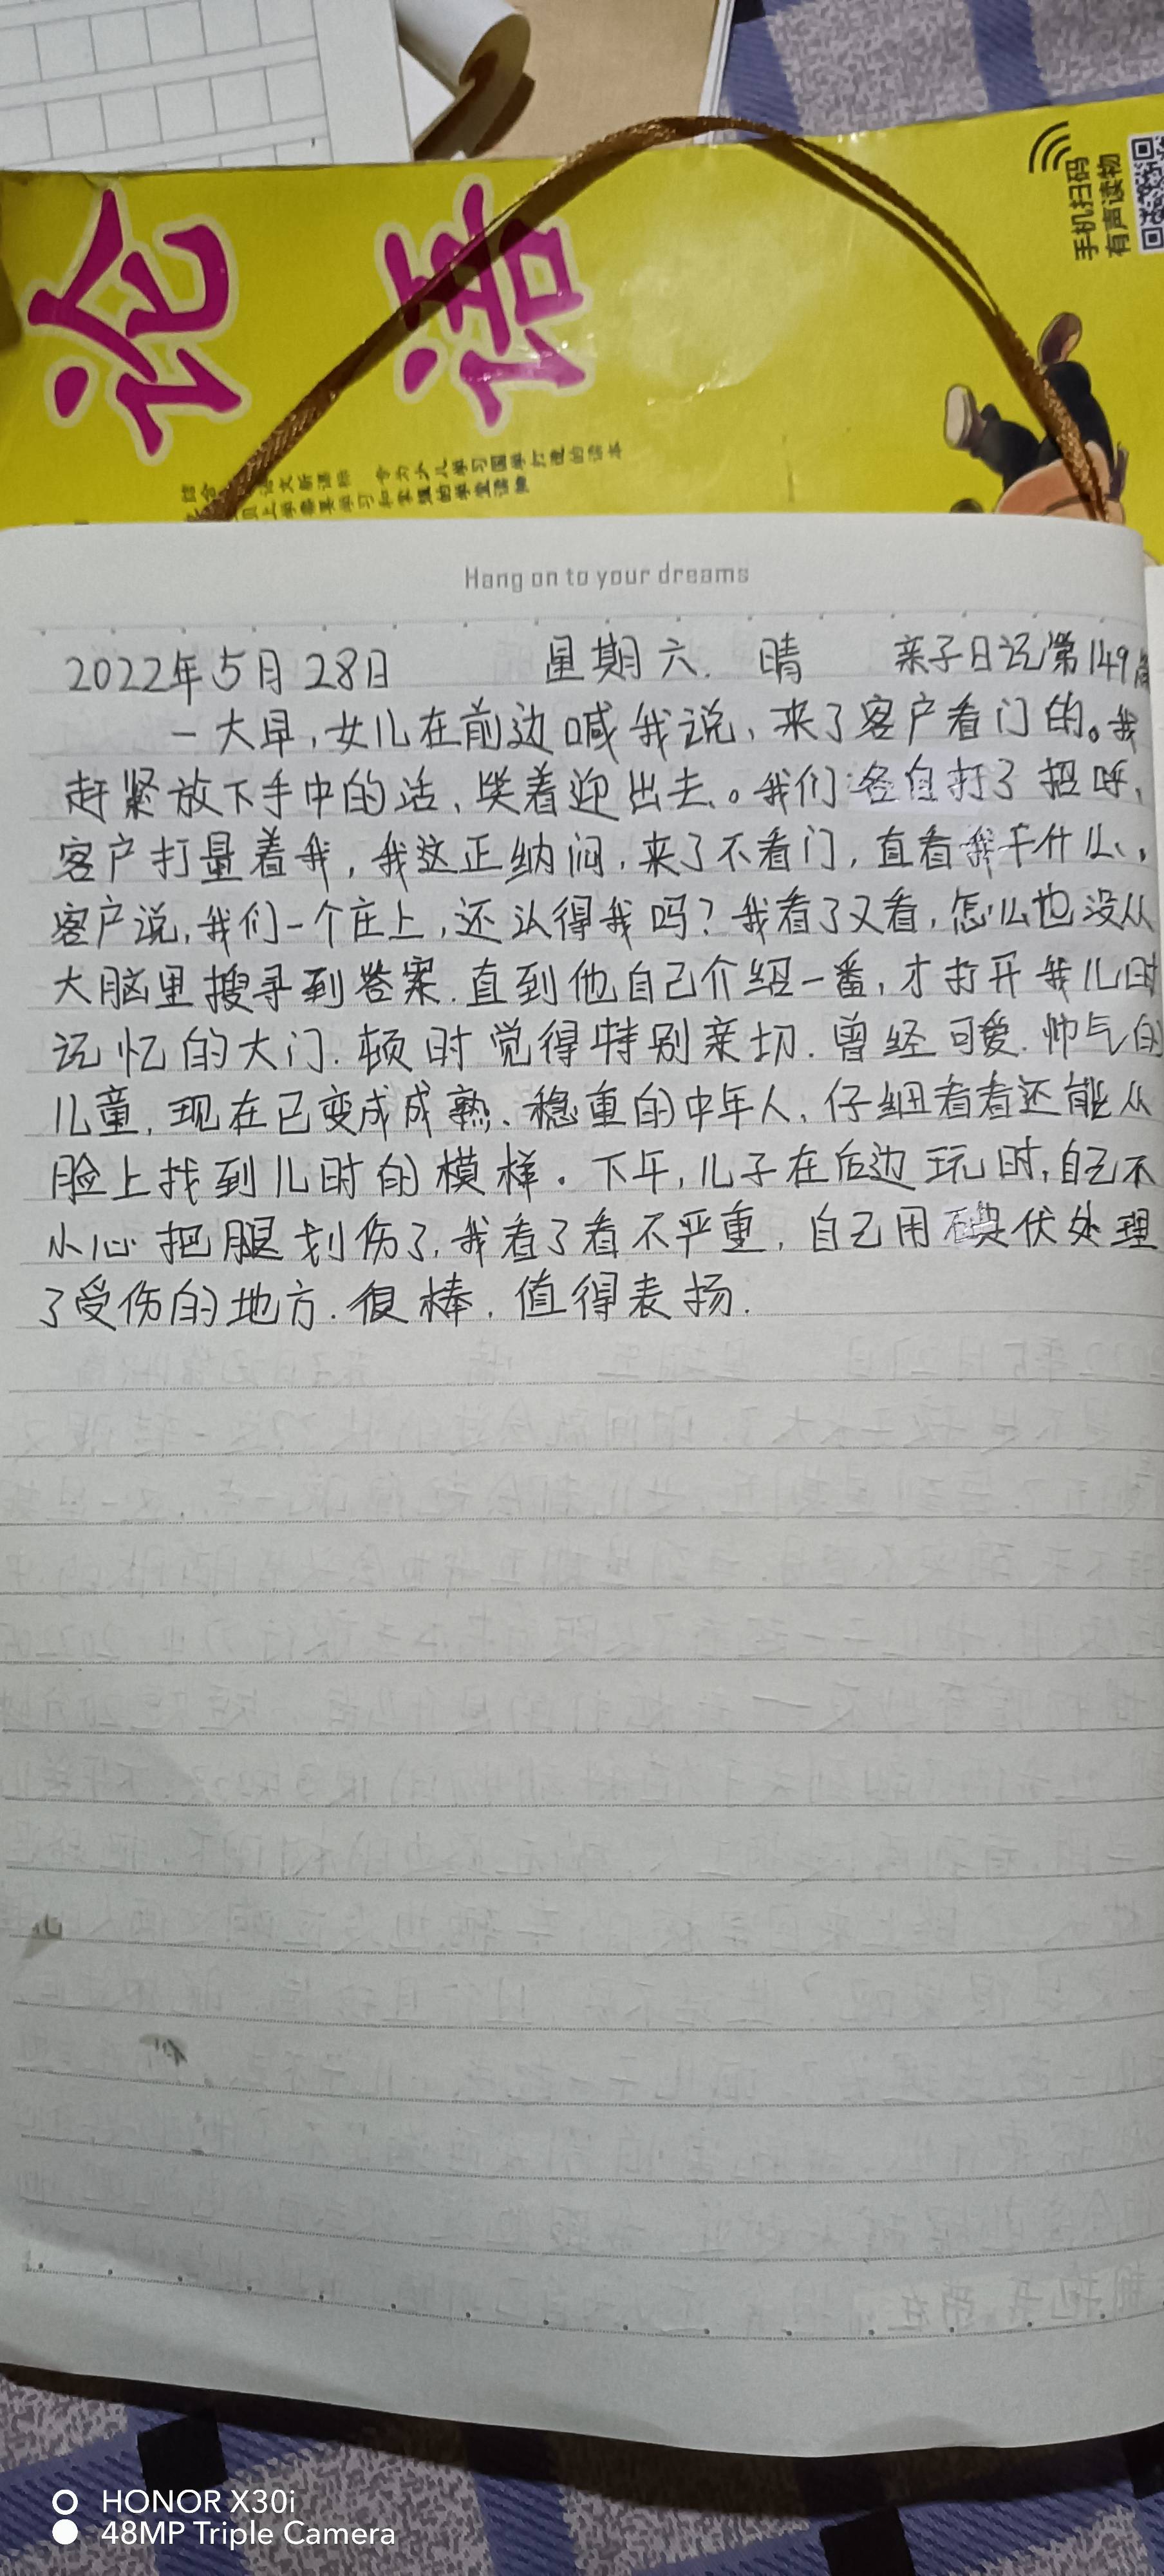 论语
手机扫码
有声读物
Hang on to your dreams
2022年5月28日 星期六. 晴 亲子日记第149篇
一大早,女儿在前边喊我说,来了客户看门的。我
赶紧放下手中的活,笑着迎出去。我们各自打了招呼,
客户打量着我,我这正纳闷,来了不看门,直看我干什么,
客户说,我们一个庄上,还认得我吗?我看了又看,怎么也没从
大脑里搜寻到答案.直到他自己介绍一番,才打开我儿时
记忆的大门.顿时觉得特别亲切.曾经可爱.帅气的
儿童,现在已变成成熟、稳重的中年人,仔细看看还能从
脸上找到儿时的模样。下午,儿子在后边玩时,自己不
小心把腿划伤了,我看了看不严重,自己用碘伏处理
了受伤的地方.很棒.值得表扬.
HONOR X30i
48MP Triple Camera